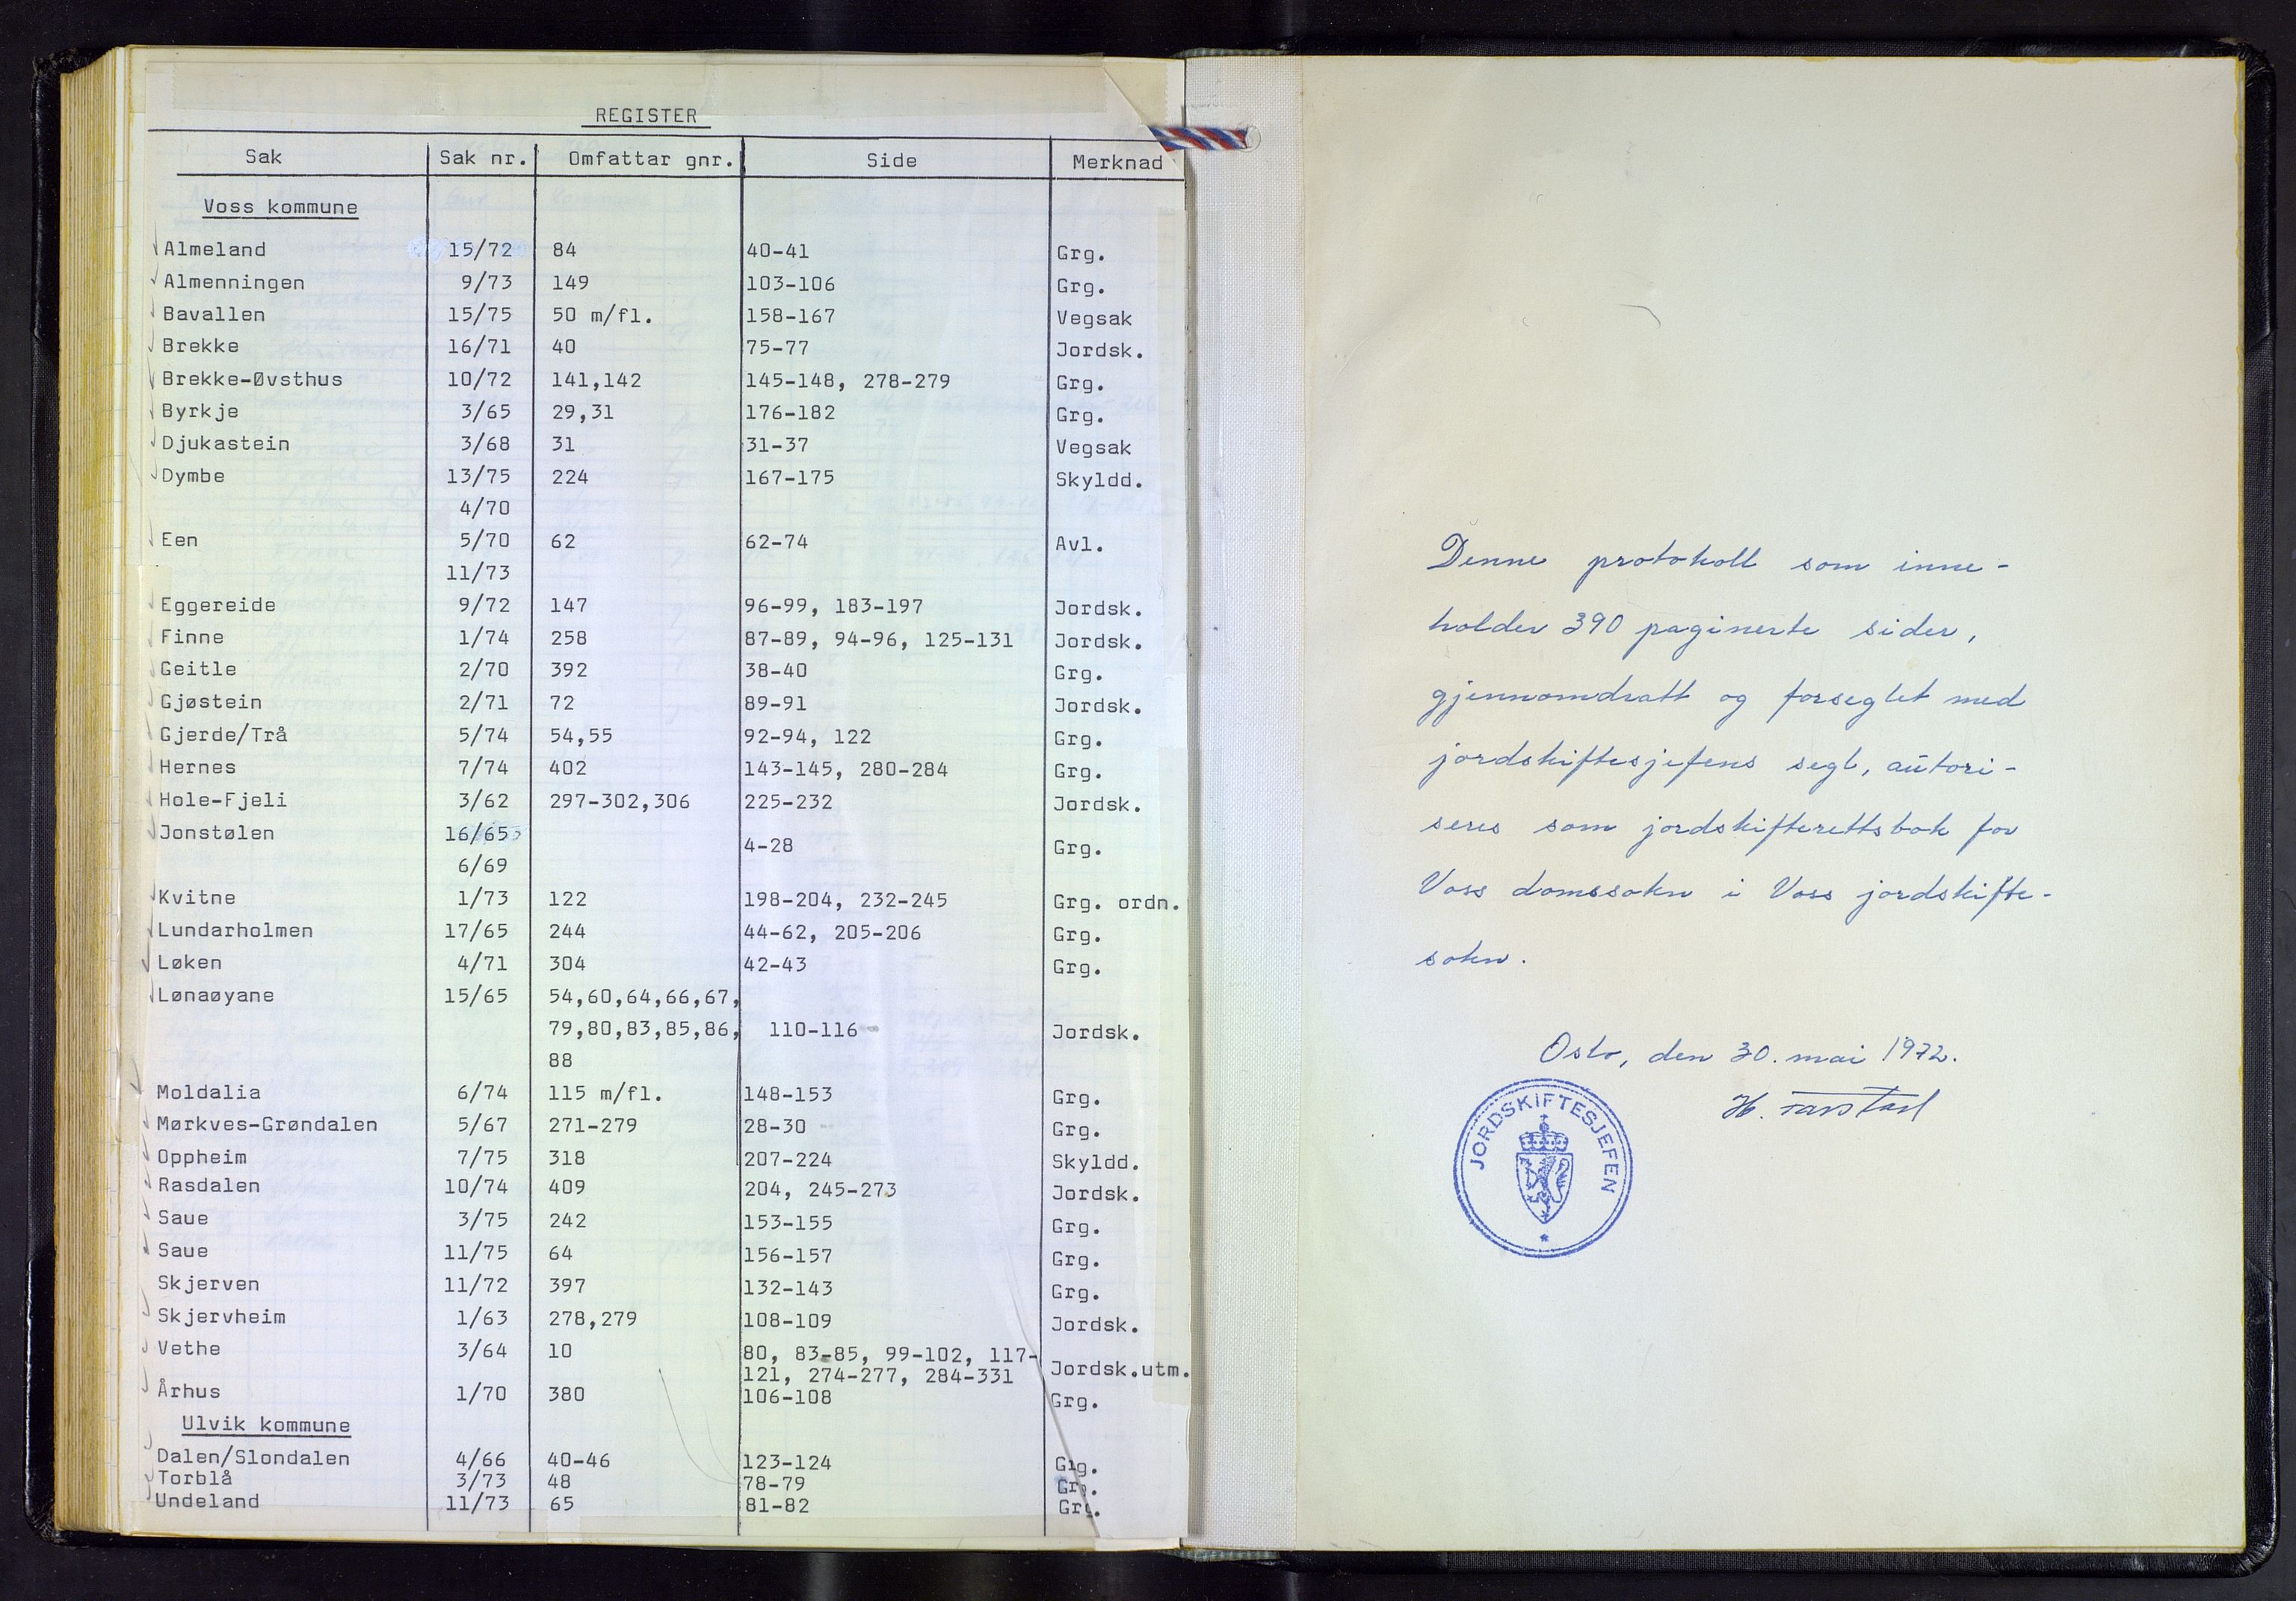 REGISTER
Sak Sak nr. Omfattar gnr. Side Merknad
Voss kommune
Almeland 15/72 84 40-41 Grg.
Almenningen 9/73 149 103-106 Grg.
Bavallen 15/75 50 m/fl. 158-167 Vegsak
Brekke 16/71 40 75-77 Jordsk.
Brekke-Øvsthus 10/72 141,142 145-148, 278-279 Grg.
Byrkje 3/65 29,31 176-182 Grg.
Djukastein 3/68 31 31-37 Vegsak
Dymbe 13/75 224 167-175 Skyldd.
4/70
Een 5/70 62 62-74 Avl.
11/73
Eggereide 9/72 147 96-99, 183-197 Jordsk.
Finne 1/74 258 87-89, 94-96, 125-131 Jordsk.
Geitle 2/70 392 38-40 Grg.
Gjøstein 2/71 72 89-91 Jordsk.
Gjerde/Trå 5/74 54,55 92-94, 122 Grg.
Hernes 7/74 402 143-145, 280-284 Grg.
Hole-Fjeli 3/62 297-302,306 225-232 Jordsk.
Jonstølen 16/65
4-28 Grg.
6/69
Kvitne 1/73 122 198-204, 232-245 Grg. ordn.
Lundarholmen 17/65 244 44-62, 205-206 Grg.
Løken 4/71 304 42-43 Grg.
Lønaøyane 15/65 54,60,64,66,67,
79,80,83,85,86, 110-116 Jordsk.
88
Moldalia 6/74 115 m/fl. 148-153 Grg.
Mørkves-Grøndalen 5/67 271-279 28-30 Grg.
Oppheim 7/75 318 207-224 Skyldd.
Rasdalen 10/74 409 204, 245-273 Jordsk.
Saue 3/75 242 153-155 Grg.
Saue 11/75 64 156-157 Grg.
Skjerven 11/72 397 132-143 Grg.
Skjervheim 1/63 278,279 108-109 Jordsk.
Vethe 3/64 10 80, 83-85, 99-102, 117-
121, 274-277, 284-331 Jordsk.utm.
Århus 1/70 380 106-108 Grg.
Ulvik kommune
Dalen/Slondalen 4/66 40-46 123-124 Grg.
Torblå 3/73 48 78-79 Grg.
Undeland 11/73 65 81-82 Grg.
Denne protokoll som inne-
holder 390 paginerte sider,
gjennomdratt og forseglet med
jordskiftesjefens segl, autori-
seres som jordskifterettsbok for
Voss domssokn i Voss jordskifte-
sokn.
Oslo, den 30. mai 1972.
JORDSKIFTESJEFEN